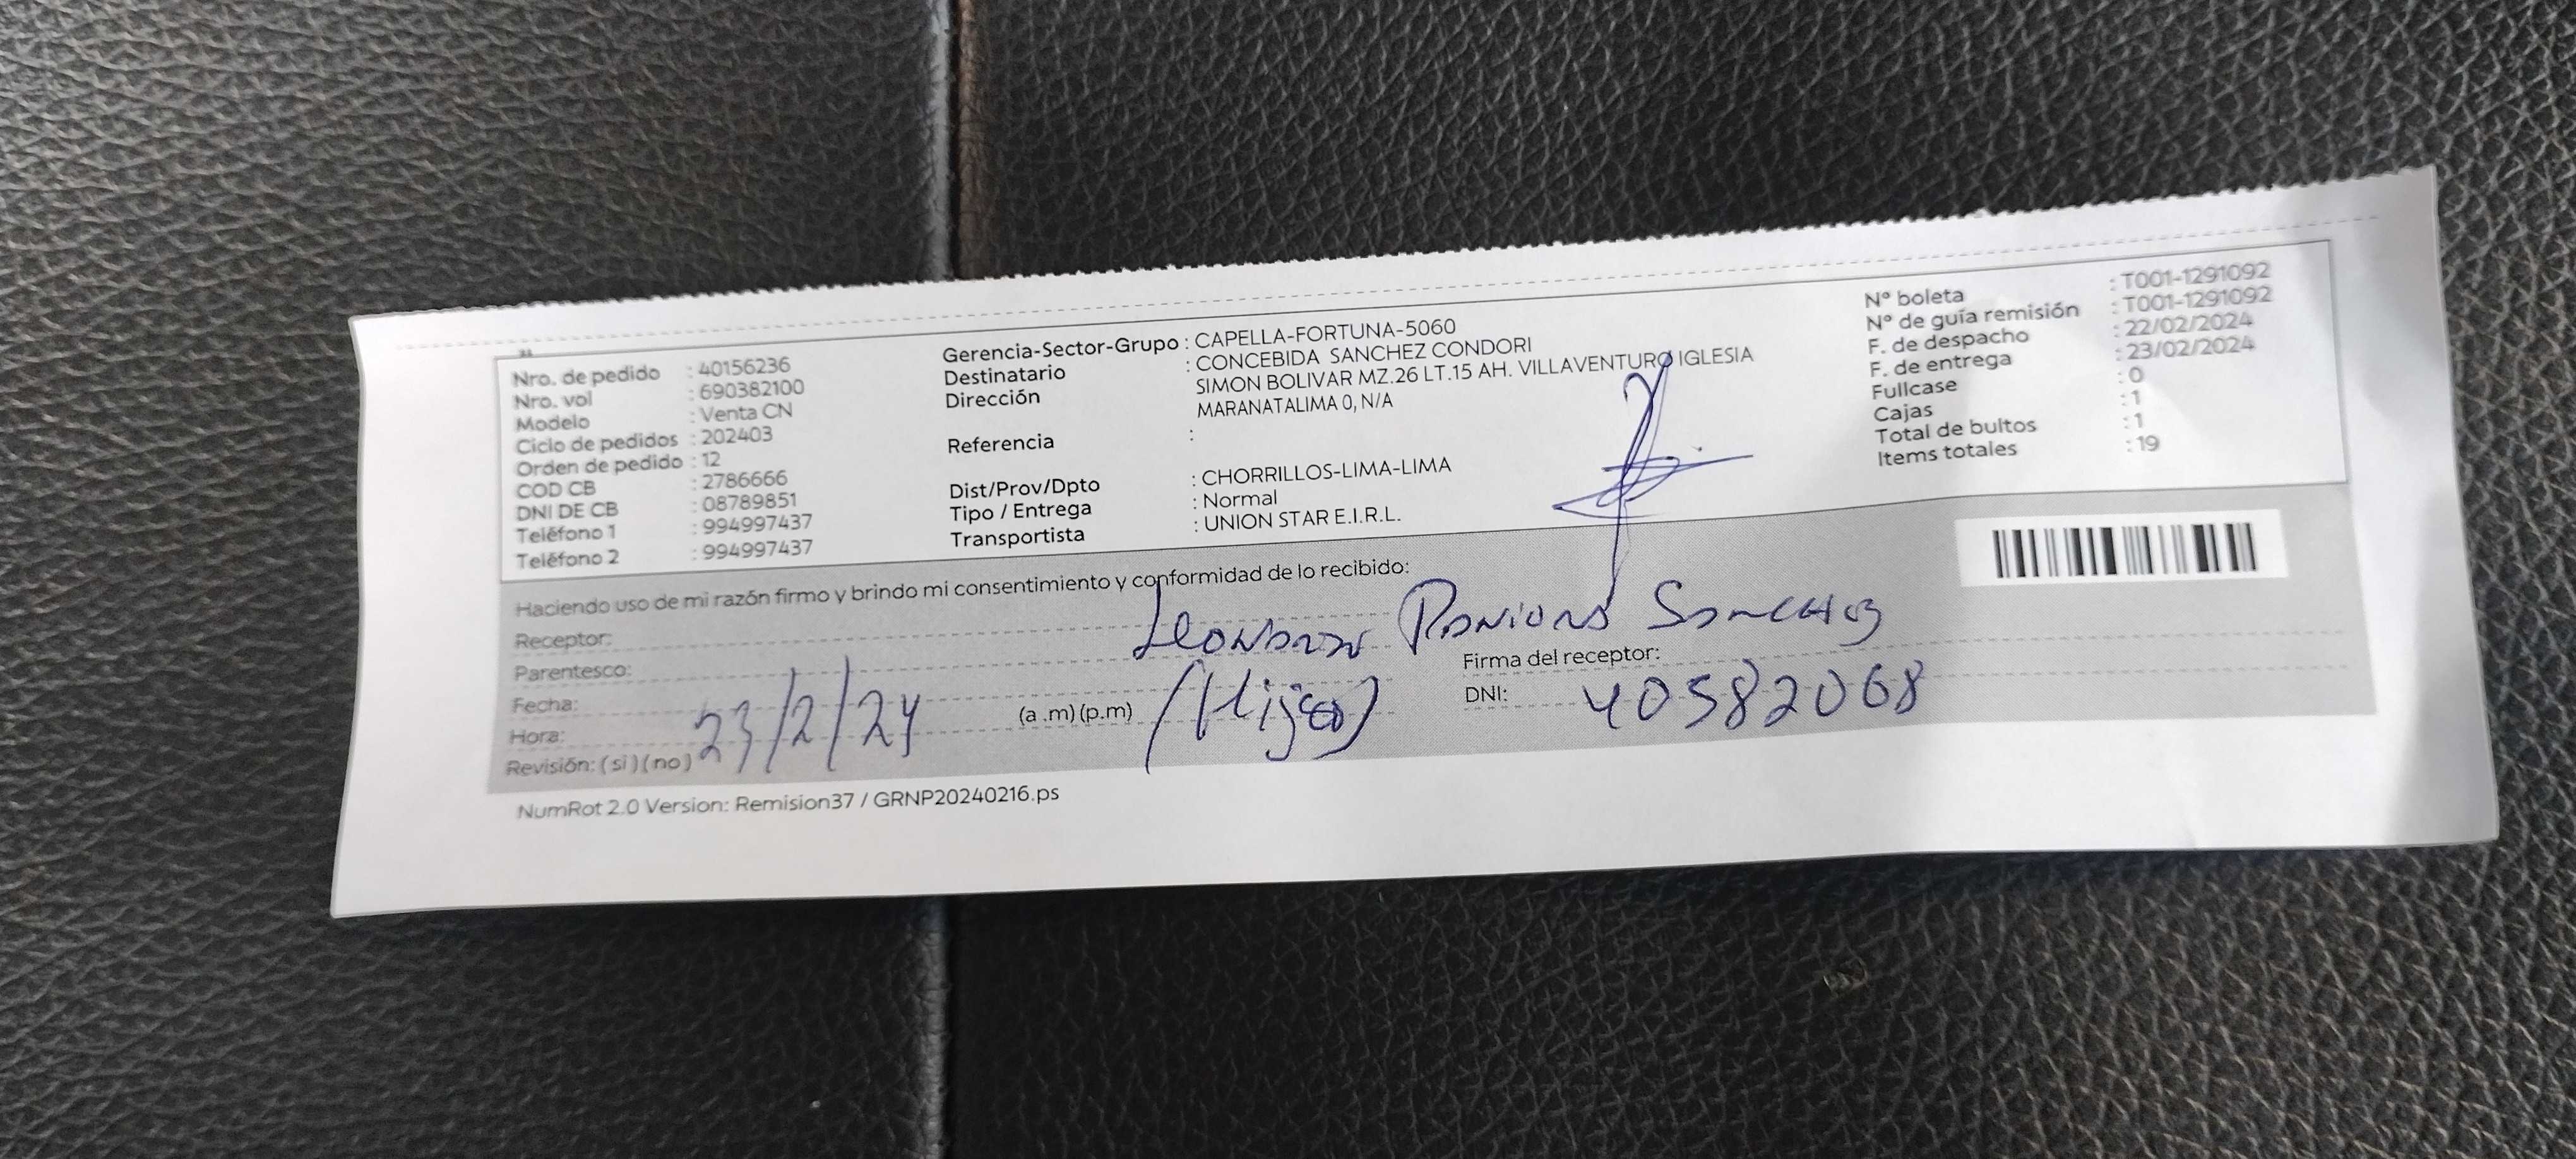 Nro. de pedido : 40156236
Nro. vol : 690382100
Modelo : Venta CN
Ciclo de pedidos : 202403
Orden de pedido : 12
COD CB : 2786666
DNI DE CB : 08789851
Teléfono 1 : 994997437
Teléfono 2 : 994997437
Gerencia-Sector-Grupo : CAPELLA-FORTUNA-5060
Destinatario : CONCEBIDA SANCHEZ CONDORI
Dirección SIMON BOLIVAR MZ.26 LT.15 AH. VILLAVENTURO IGLESIA
MARANATALIMA 0, N/A
Referencia :
Dist/Prov/Dpto : CHORRILLOS-LIMA-LIMA
Tipo / Entrega : Normal
Transportista : UNION STAR E.I.R.L.
N° boleta : T001-1291092
N° de guía remisión : T001-1291092
F. de despacho : 22/02/2024
F. de entrega : 23/02/2024
Fullcase : 0
Cajas : 1
Total de bultos : 1
Items totales : 19
Haciendo uso de mi razón firmo y brindo mi consentimiento y conformidad de lo recibido:
Receptor: Sanchez
Parentesco:
Firma del receptor:
Fecha: 23/2/24
(a .m) (p.m)
DNI: 40582068
Hora:
Revisión: ( si ) ( no )
NumRot 2.0 Version: Remision37 / GRNP20240216.ps